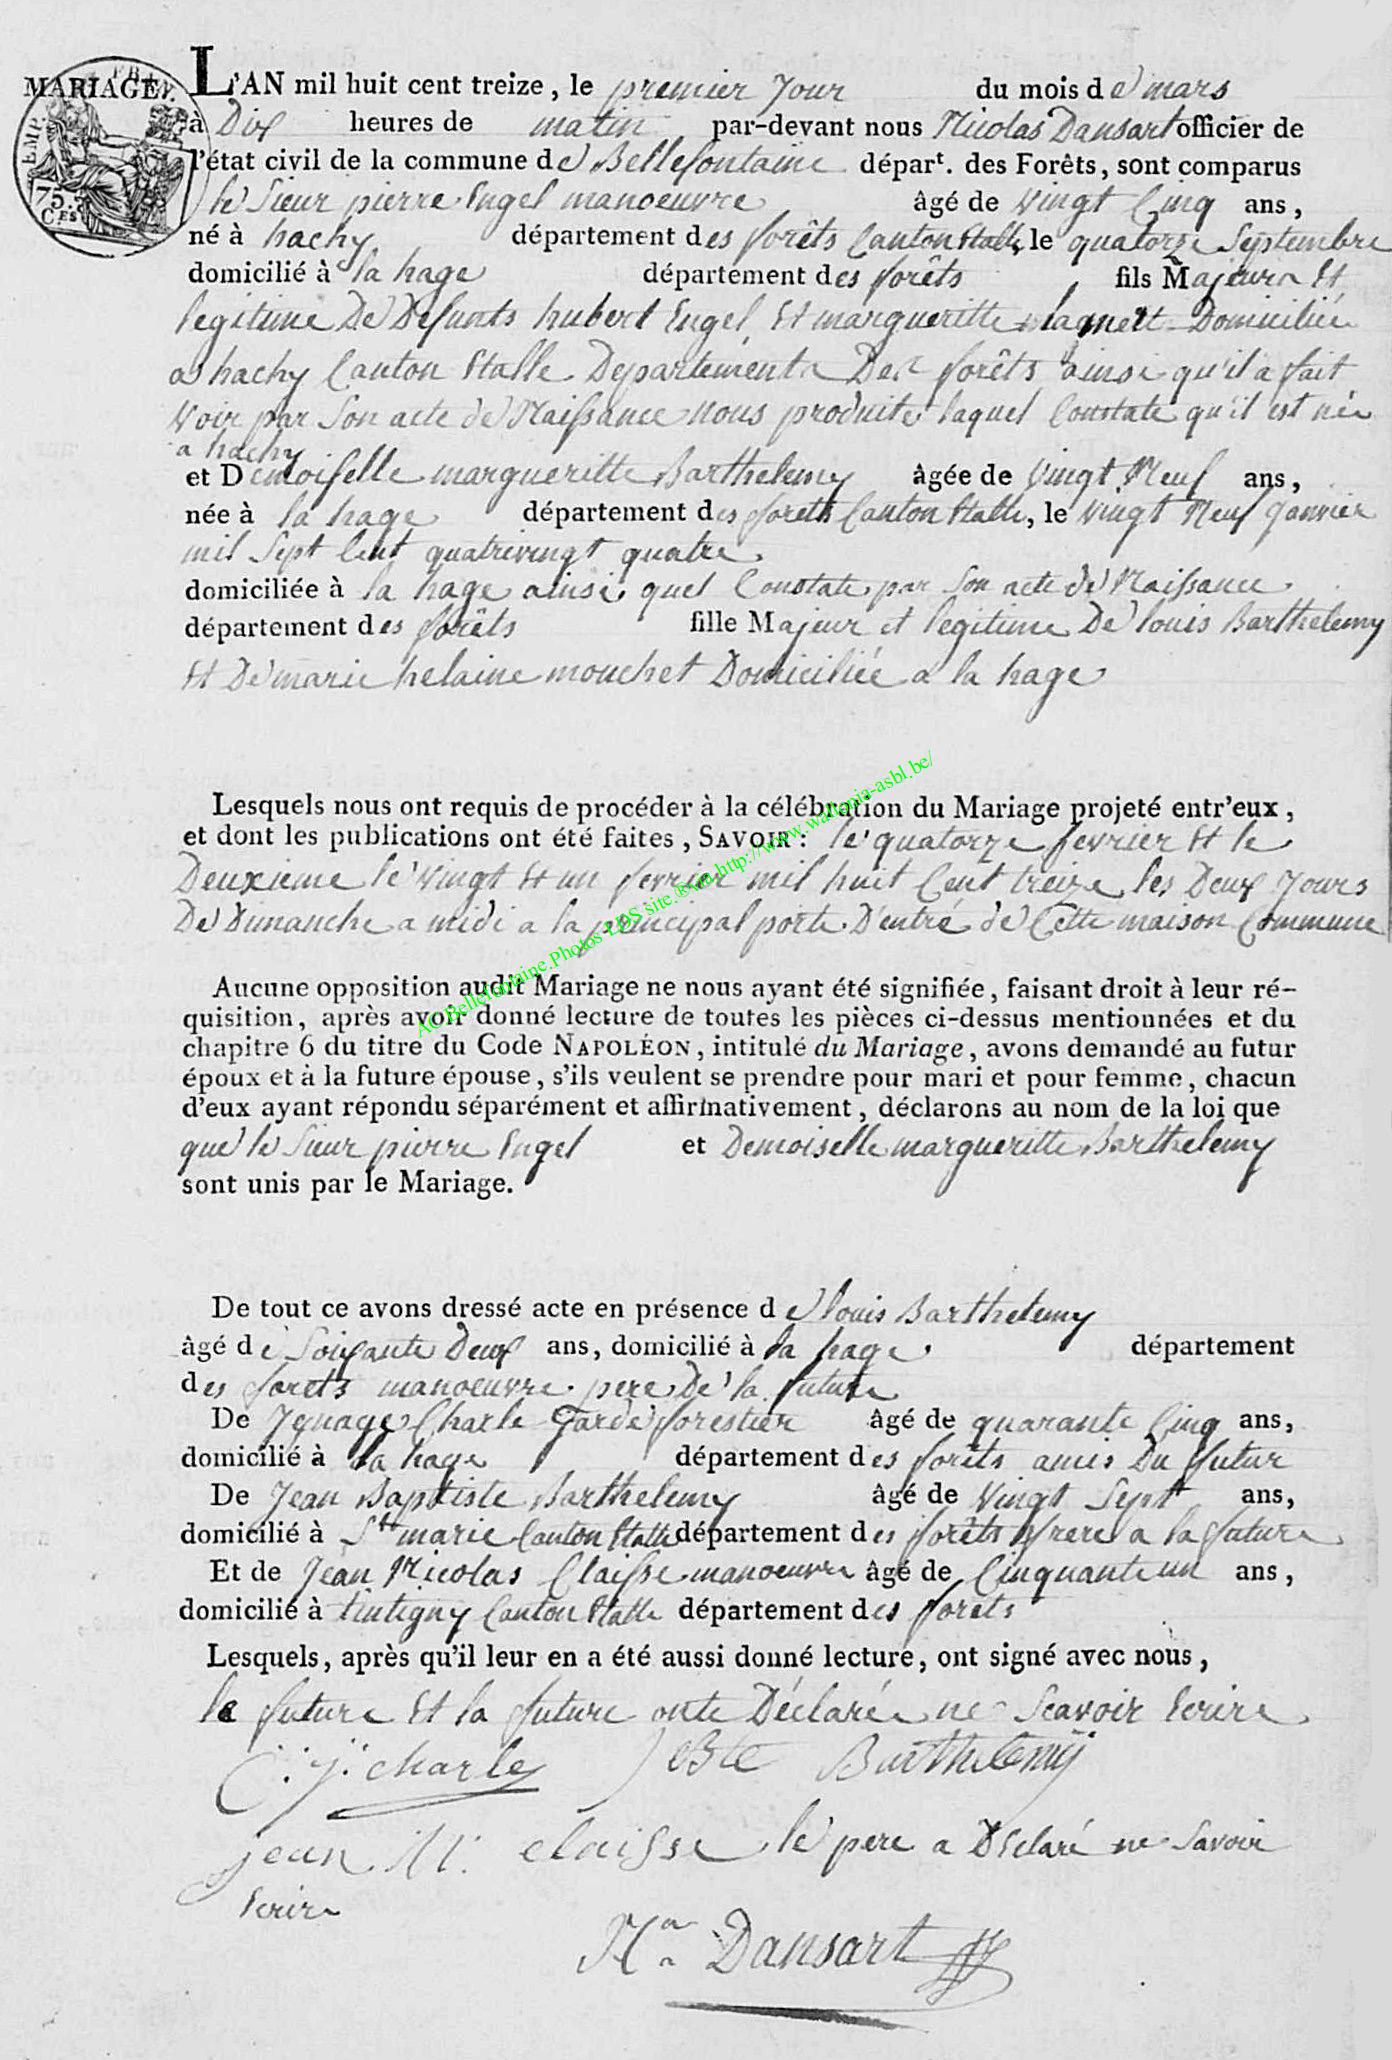 MARIAGE.
EMP. FRAN.
75.
C.ES
L'AN mil huit cent treize, le premier Jour du mois de mars
à Dix heures de matin par-devant nous Nicolas Dansart officier de
l'état civil de la commune de Bellefontaine départ. des Forêts, sont comparus
le Sieur pierre Engel manoeuvre âgé de Vingt Cinq ans,
né à hachy département des forêts Canton Etalle, le quatorze Septembre
domicilié à la hage département des forêts fils Majeur Et
legitime De Defunts hubert Engel Et margueritte Domiciliée
a hachy Canton Etalle Departement Des forêts ainsi qu'il a fait
Voir par Son acte de Naissance nous produite laquel Constate qu'il est née
a hachy
et Demoiselle margueritte Barthelemy âgée de Vingt Neuf ans,
née à la hage département des forets Canton Etalle, le Vingt Neuf Janvier
mil Sept Cent quatrevingt quatre
domiciliée à la hage ainsi quel Constate par Son acte de Naissance
département des forêts fille Majeur et legitime De louis Barthelemy
Et De marie helaine mouchet Domiciliée a la hage
Lesquels nous ont requis de procéder à la célébration du Mariage projeté entr'eux,
et dont les publications ont été faites, SAVOIR : le quatorze fevrier Et le
Deuxieme le Vingt Et un fevrier mil huit Cent treize les Deux Jours
De Dimanche a midi a la principal porte D'entré de Cette maison Commune
AC.Bellefontaine.Photos LDS site.®via http://www.wallonia-asbl.be/
Aucune opposition audit Mariage ne nous ayant été signifiée, faisant droit à leur ré-
quisition, après avoir donné lecture de toutes les pièces ci-dessus mentionnées et du
chapitre 6 du titre du Code NAPOLÉON, intitulé du Mariage, avons demandé au futur
époux et à la future épouse, s'ils veulent se prendre pour mari et pour femme, chacun
d'eux ayant répondu séparément et affirmativement, déclarons au nom de la loi que
que le Sieur pierre Engel et Demoiselle margueritte Barthelemy
sont unis par le Mariage.
De tout ce avons dressé acte en présence de louis Barthelemy
âgé de Soixante Deux ans, domicilié à la hage département
des forets manoeuvre pere De la future
De Ygnage Charle Garde forestier âgé de quarante Cinq ans,
domicilié à la hage département des forêts amis Du futur
De Jean Baptiste Barthelemy âgé de Vingt Sept ans,
domicilié à Ste marie Canton Etalle département des forêts frere a la future
Et de Jean Nicolas Claisse manoeuvre âgé de Cinquante un ans,
domicilié à tintigny Canton Etalle département des forets
Lesquels, après qu'il leur en a été aussi donné lecture, ont signé avec nous,
le future Et la future onte Déclarée ne Scavoir Ecrire
C. y. charle JeBte Barthelemÿ
jean N. claisse le pere a Déclaré ne Savoir
Ecrire
Na Dansart